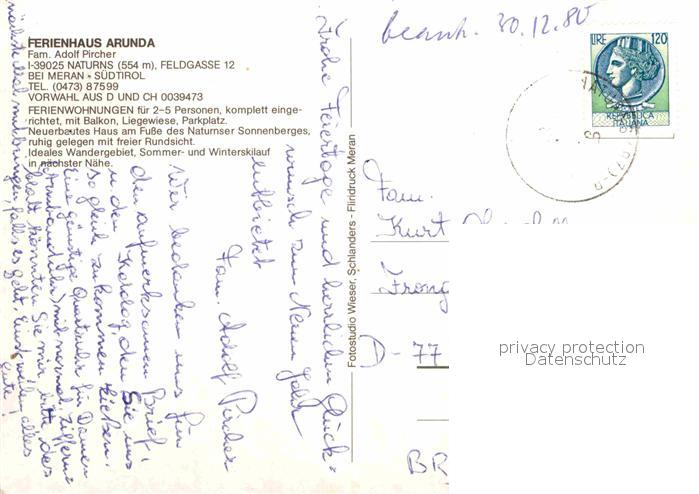 FERIENHAUS ARUNDA
Fam. Adolf Pircher
I-39025 NATURNS (554 m), FELDGASSE 12
BEI MERAN - SÜDTIROL
TEL. (0473) 87599
VORWAHL AUS D UND CH 0039473
FERIENWOHNUNGEN für 2-5 Personen, komplett einge-
richtet, mit Balkon, Liegewiese, Parkplatz.
Neuerbautes Haus am Fuße des Naturnser Sonnenberges,
ruhig gelegen mit freier Rundsicht.
Ideales Wandergebiet, Sommer- und Winterskilauf
in nächster Nähe.
Frohe Feiertage und herzlichen Glück-
wunsch zum Neuen Jahr
entbietet
Fam. Adolf Pircher
Wir bedanken uns für
den aufmerksamen Brief
u. den Katalog, den Sie uns
so gleich zukommen ließen.
Eine günstige Quarzuhr für Damen
(Armbanduhr) mit normal. Ziffern-
blatt könnten Sie mir bitte das
nächste Mal mitbringen, falls es geht. Einstweilen alles
gute!
Fotostudio Wieser, Schlanders - Flindruck Meran
beantw. 30.12.80
LIRE 120
REPVBBLICA
ITALIANA
Fam.
Kurt
D - 77
BR
privacy protection
Datenschutz